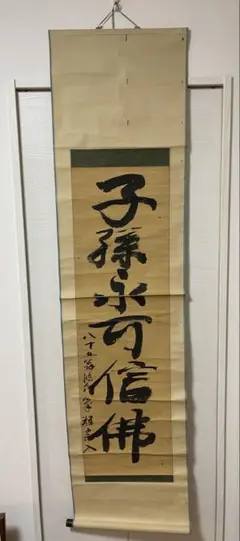 子孫永可信佛
八十五翁